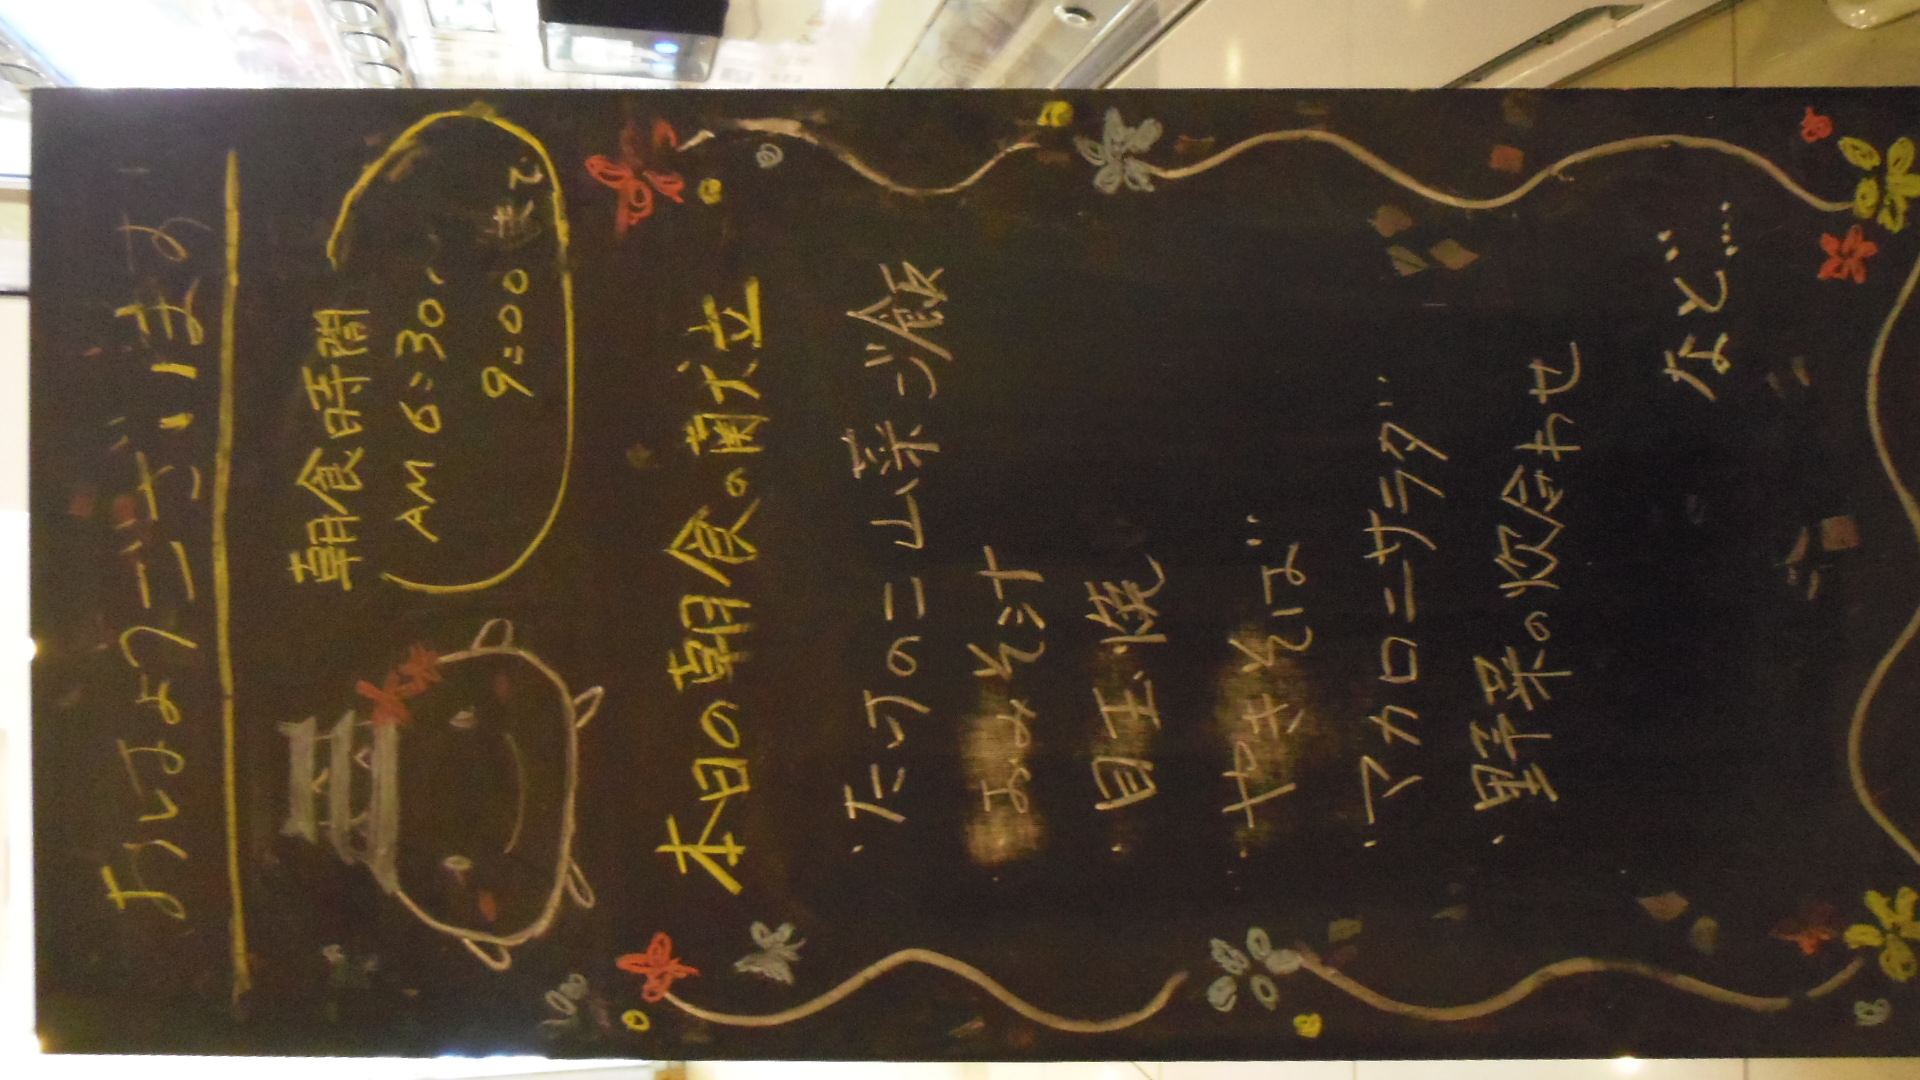 おはようございます
朝食時間
AM 6:30〜
9:00 まで
本日の朝食の献立
・たけのこ山菜ご飯
・おみそ汁
・目玉焼
・やきそば
・マカロニサラダ
・野菜の炊合わせ
など…